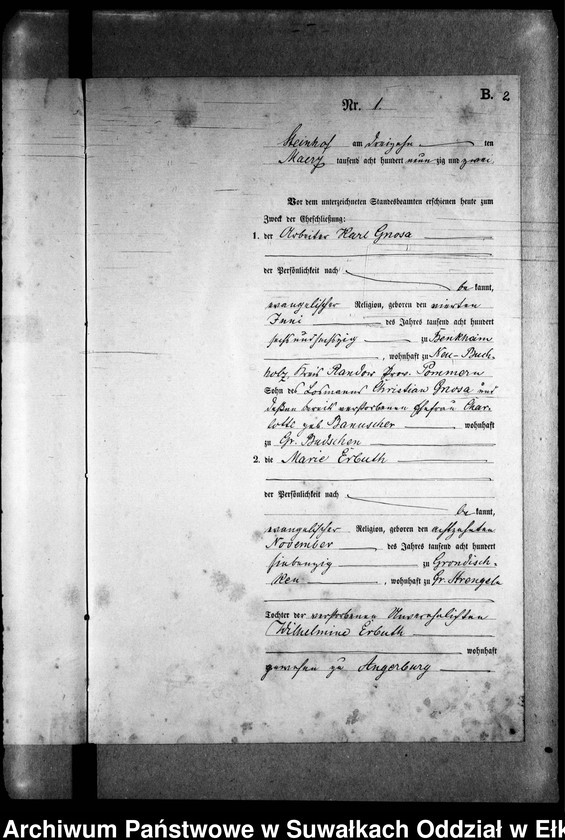 B. 2
Nr. 1.
Steinhof am dreizehn ten
Maerz tausend acht hundert neun zig und zwei.
Vor dem unterzeichneten Standesbeamten erschienen heute zum
Zweck der Eheschließung:
1. der Arbeiter Karl Gnosa
der Persönlichkeit nach
be kannt,
evangelischer Religion, geboren den vierten
Juni des Jahres tausend acht hundert
sechsundsechszig zu Benkheim
, wohnhaft zu Neu-Buch-
holz Kreis Randow Prov. Pommern
Sohn des Losmanns Christian Gnosa und
deßen bereits verstorbenen Ehefrau Char-
lotte geb Banuscher wohnhaft
zu Gr. Budschen
2. die Marie Erbuth
der Persönlichkeit nach
be kannt,
evangelischer Religion, geboren den achtzehnten
November des Jahres tausend acht hundert
siebenzig zu Grondisch-
ken , wohnhaft zu Gr. Strengeln
Tochter der verstorbenen Unverehelichten
Wilhelmine Erbuth
wohnhaft
gewesen zu Angerburg
Archiwum Państwowe w Suwałkach Oddział w Ełk